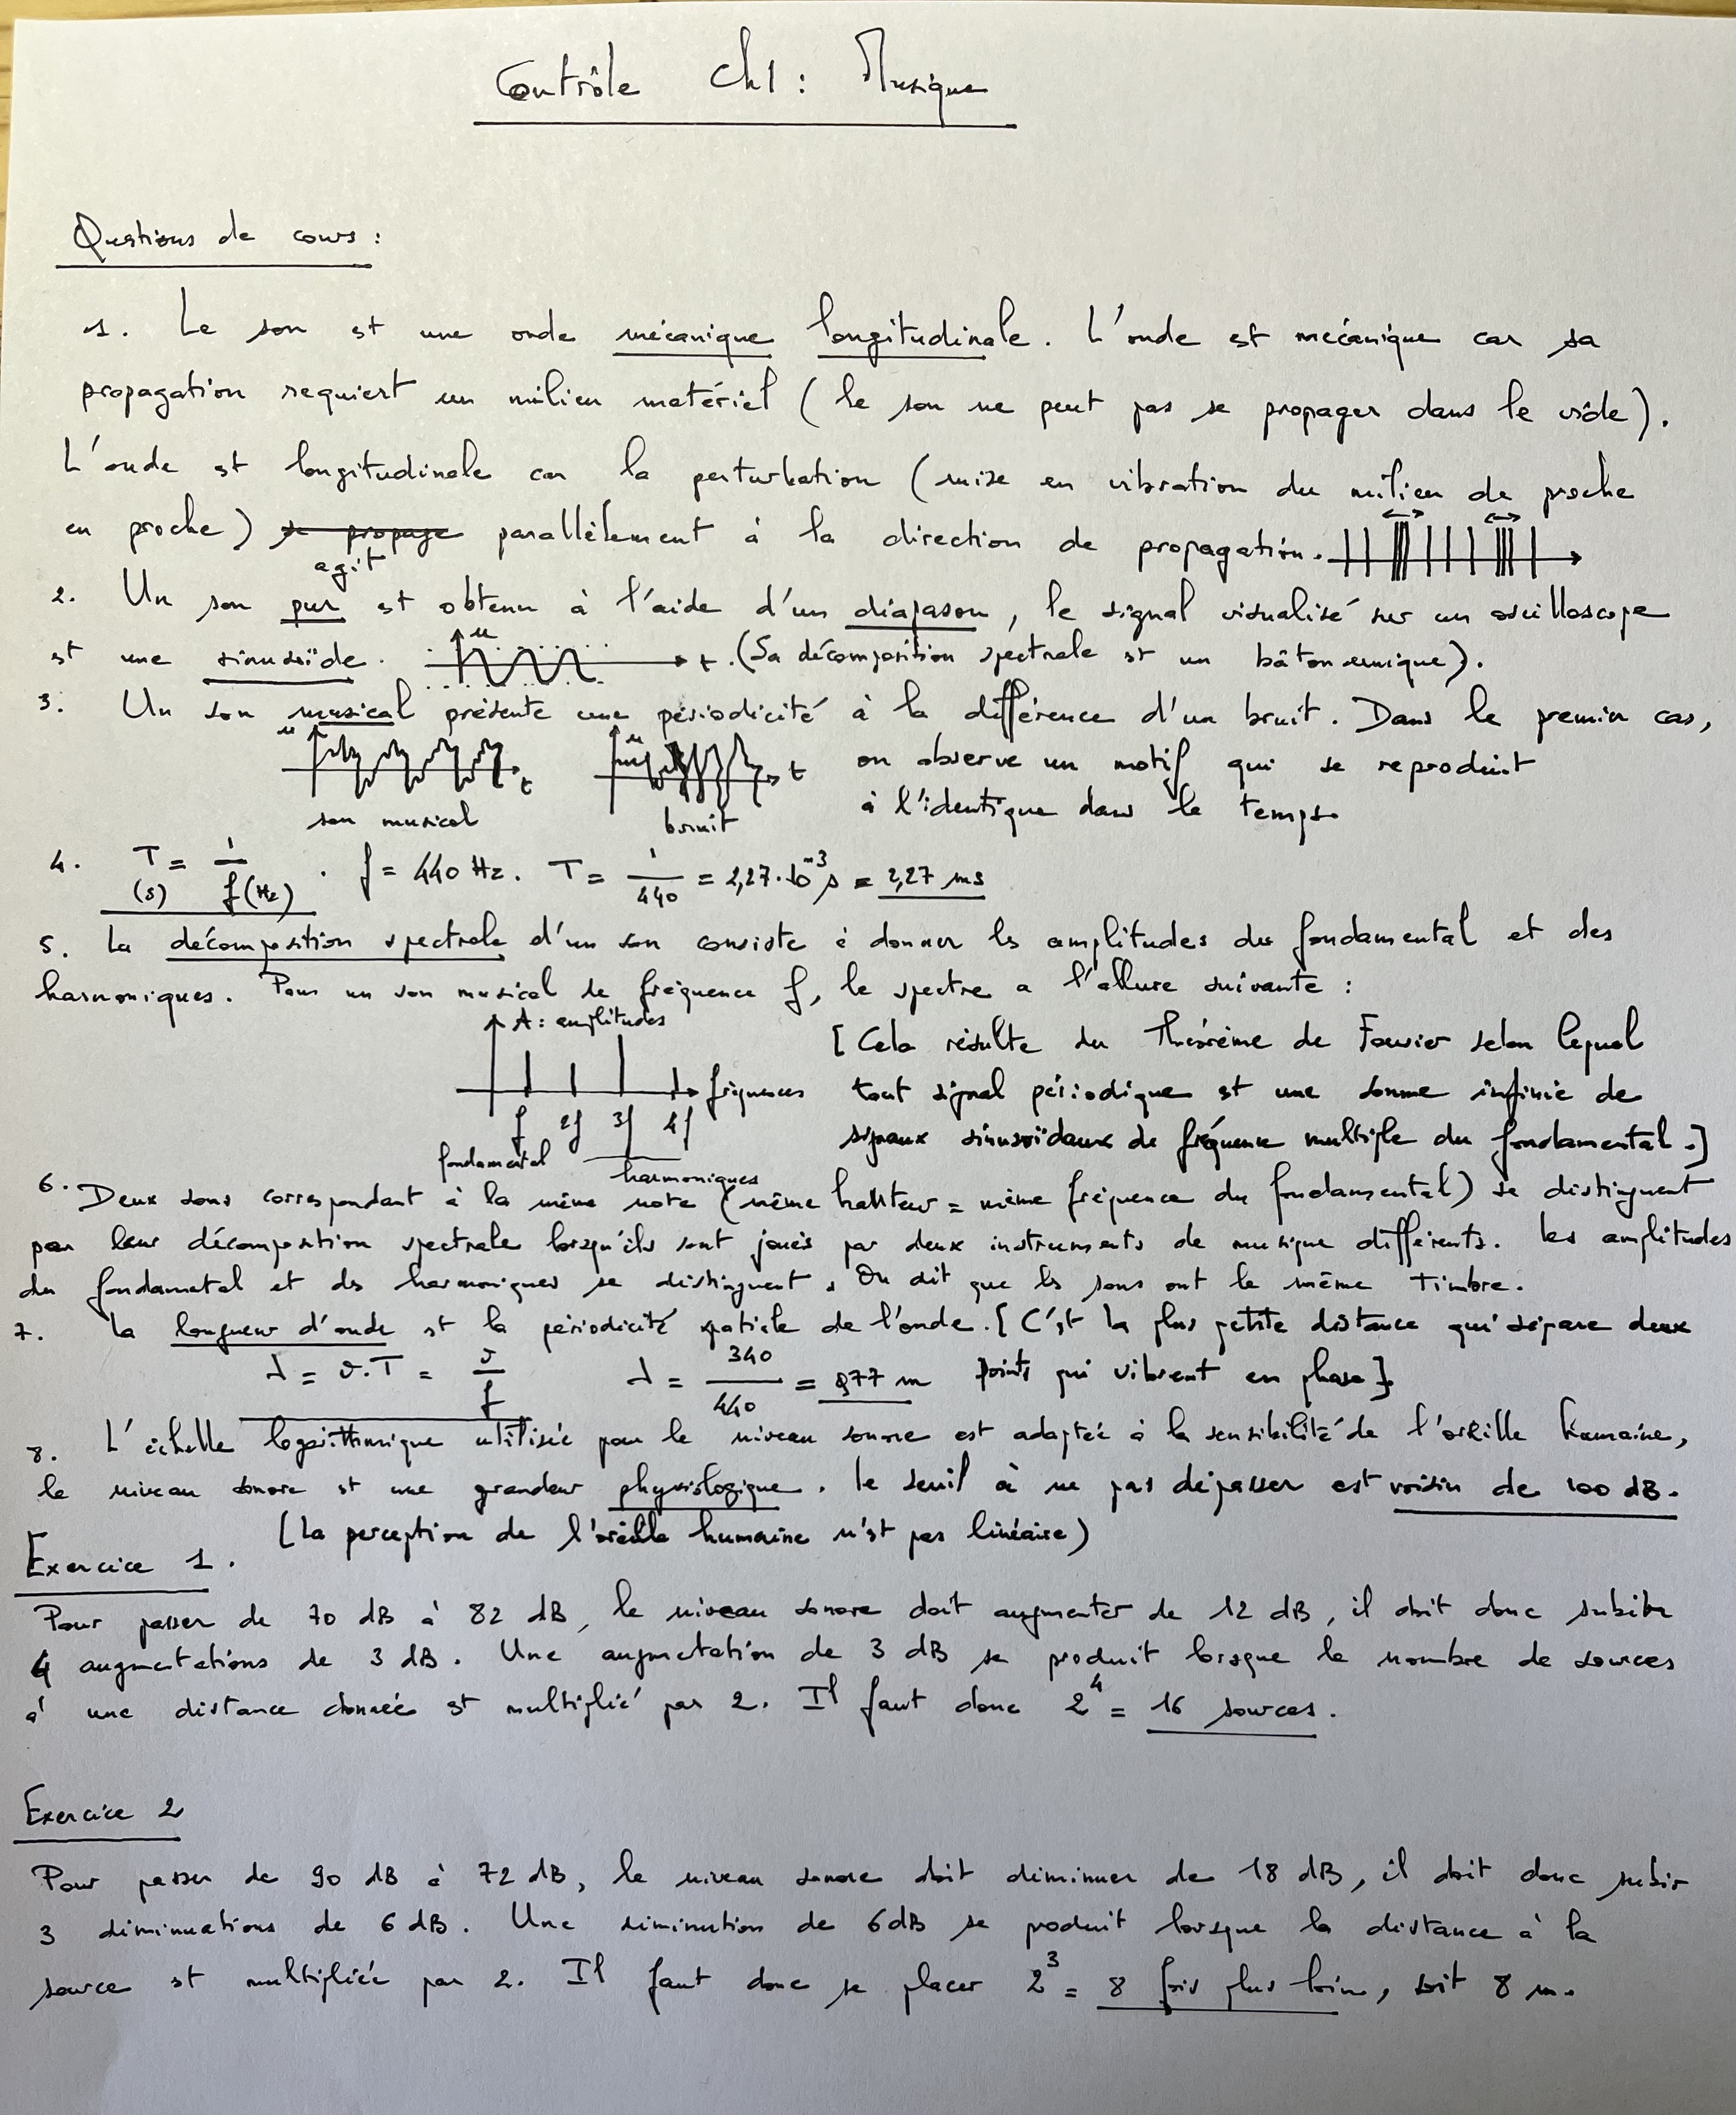 Contrôle Ch1 : Musique
Questions de cours :
1. Le son est une onde mécanique longitudinale. L'onde est mécanique car sa
propagation requiert un milieu matériel (le son ne peut pas se propager dans le vide).
L'onde est longitudinale car la perturbation (mise en vibration du milieu de proche
en proche) se propage parallèlement à la direction de propagation.
agit
2. Un son pur est obtenu à l'aide d'un diapason, le signal visualisé sur un oscilloscope
est une sinusoïde. u t. (Sa décomposition spectrale est un bâton unique).
3. Un son musical présente une périodicité à la différence d'un bruit. Dans le premier cas,
u t u t on observe un motif qui se reproduit
son musical bruit à l'identique dans le temps.
4. T = 1/f . f = 440 Hz. T = 1/440 = 2,27·10⁻³ s = 2,27 ms
(s) (Hz)
5. La décomposition spectrale d'un son consiste à donner les amplitudes du fondamental et des
harmoniques. Pour un son musical de fréquence f, le spectre a l'allure suivante :
A : amplitudes [Cela résulte du Théorème de Fourier selon lequel
fréquences tout signal périodique est une somme infinie de
f 2f 3f 4f signaux sinusoïdaux de fréquence multiple du fondamental.]
fondamental harmoniques
6. Deux sons correspondant à la même note (même hauteur = même fréquence du fondamental) se distinguent
par leur décomposition spectrale lorsqu'ils sont joués par deux instruments de musique différents. Les amplitudes
du fondametal et des harmoniques se distinguent. On dit que les sons ont le même timbre.
7. La longueur d'onde est la périodicité spatiale de l'onde. [C'est la plus petite distance qui sépare deux
λ = v.T = v/f λ = 340/440 = 0,77 m points qui vibrent en phase].
8. L'échelle logarithmique utilisée pour le niveau sonore est adaptée à la sensibilité de l'oreille humaine,
le niveau sonore est une grandeur physiologique. Le seuil à ne pas dépasser est voisin de 100 dB.
[La perception de l'oreille humaine n'est pas linéaire)
Exercice 1.
Pour passer de 70 dB à 82 dB, le niveau sonore doit augmenter de 12 dB, il doit donc subir
4 augmentations de 3 dB. Une augmentation de 3 dB se produit lorsque le nombre de sources
à une distance donnée est multiplié par 2. Il faut donc 2⁴ = 16 sources.
Exercice 2
Pour passer de 90 dB à 72 dB, le niveau sonore doit diminuer de 18 dB, il doit donc subir
3 diminuations de 6 dB. Une diminution de 6 dB se produit lorsque la distance à la
source est multipliée par 2. Il faut donc se placer 2³ = 8 fois plus loin, soit 8 m.